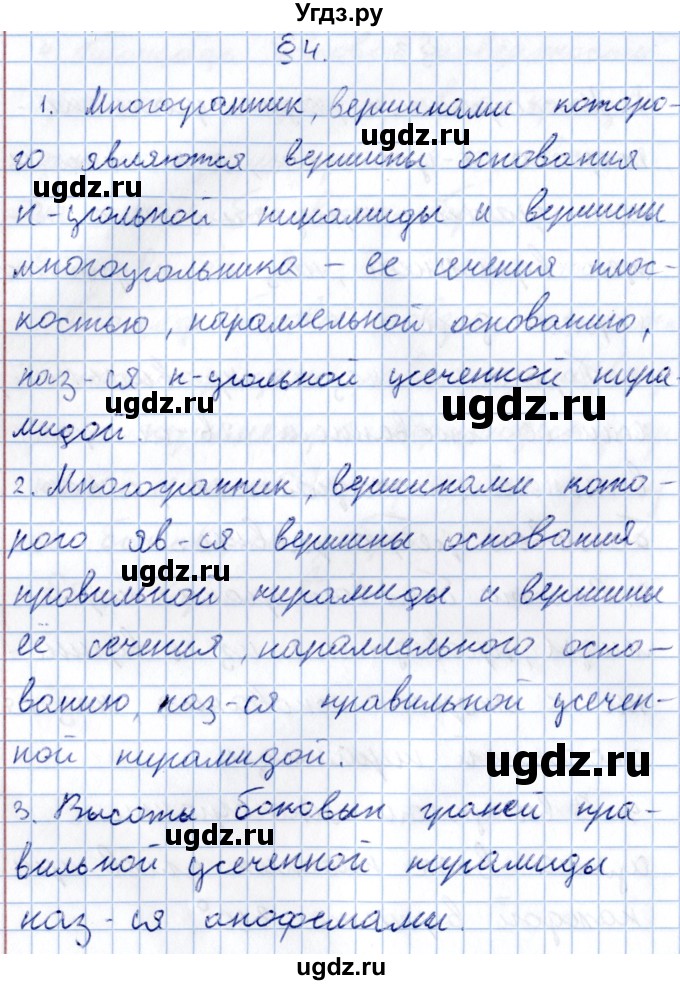 Угдз.ру
§4.
1. Многогранник, вершинами которо-
го являются вершины основания
n-угольной пирамиды и вершины
многоугольника – ее сечения плос-
костью, параллельной основанию,
наз-ся n-угольной усеченной пира-
мидой.
2. Многогранник, вершинами кото-
рого яв-ся вершины основания
правильной пирамиды и вершины
её сечения, параллельного осно-
ванию, наз-ся правильной усечен-
ной пирамидой.
3. Высоты боковых граней пра-
вильной усеченной пирамиды
наз-ся апофемами.
ugdz.ru
ugdz.ru
ugdz.ru
ugdz.ru
ugdz.ru
ugdz.ru
ugdz.ru
ugdz.ru
ugdz.ru